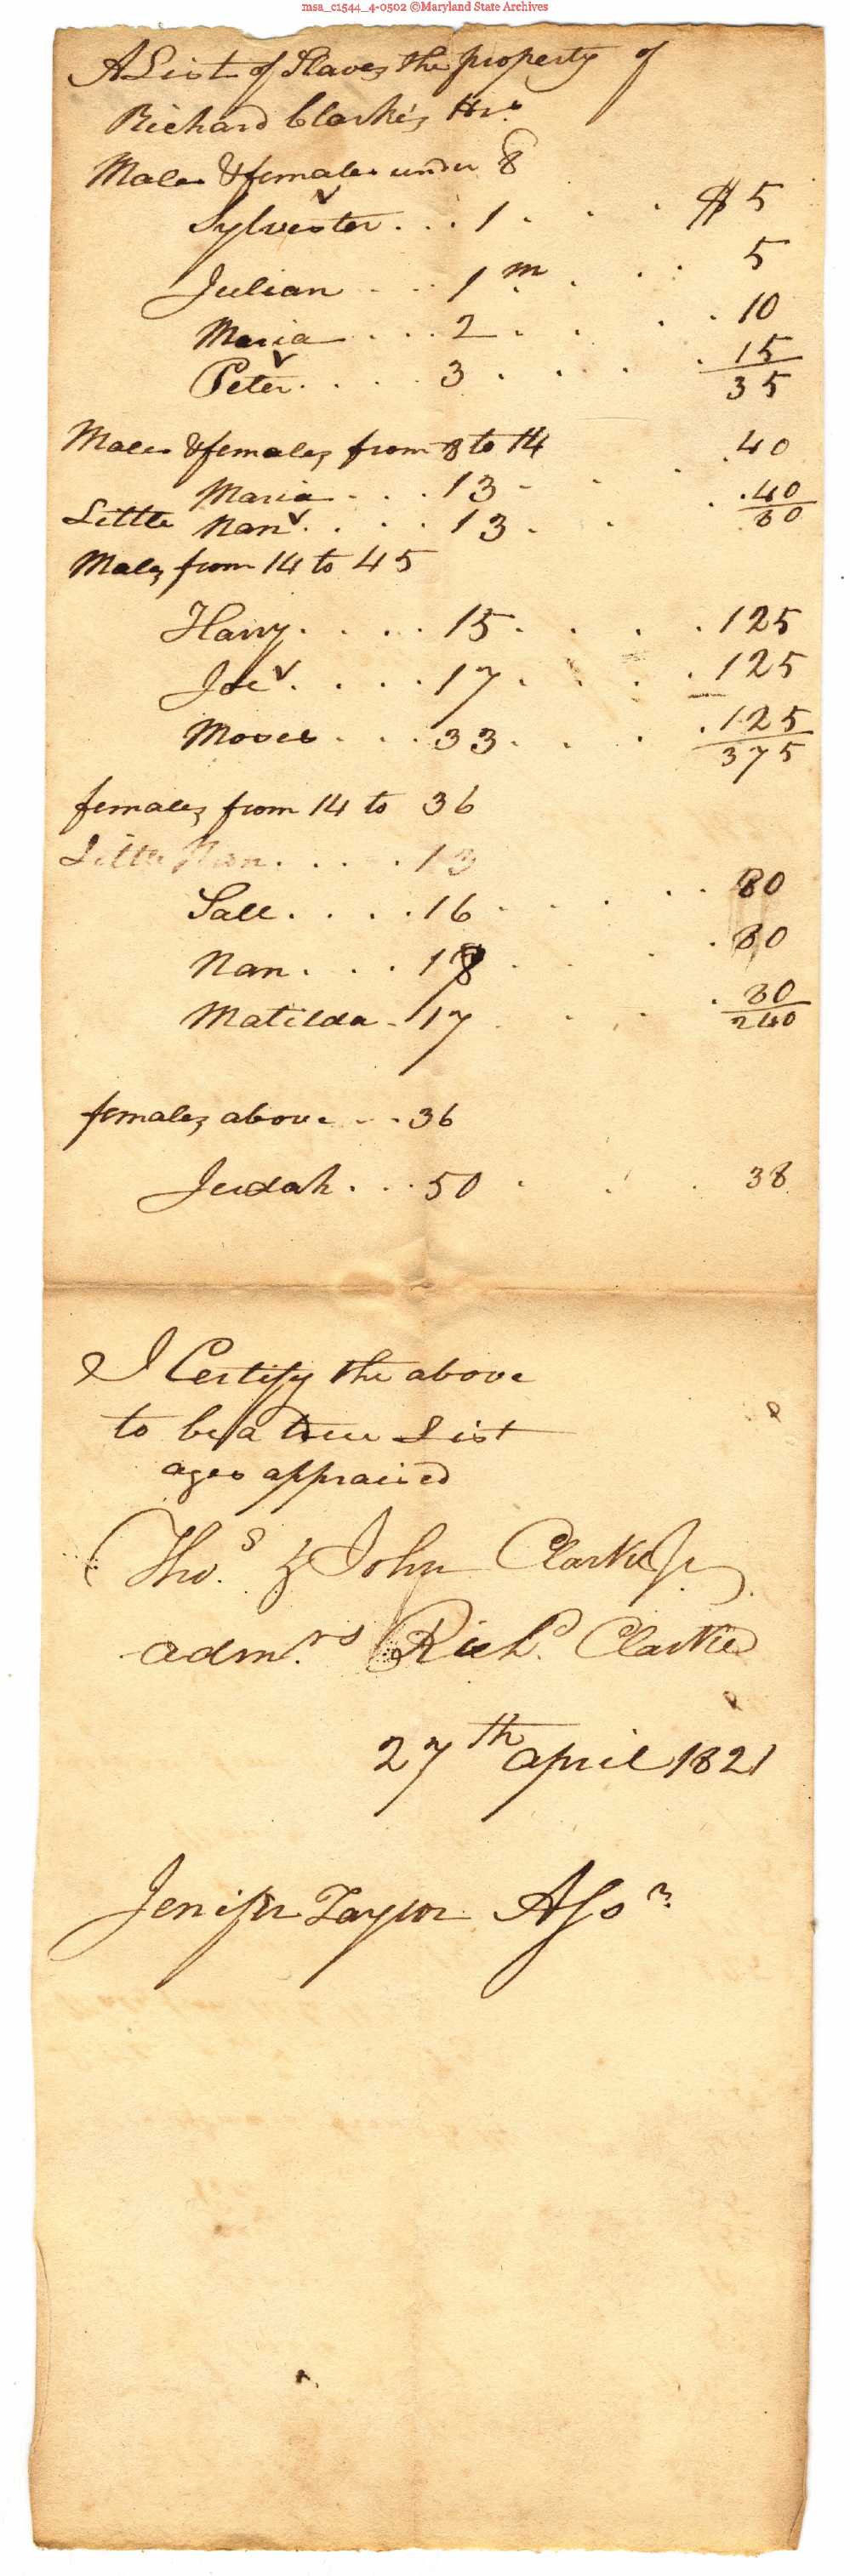 msa_c1544_4-0502 ©Maryland State Archives
A List of Slaves the property of
Richard Clarke's Hrs
Males & females under 8
Sylvester . . . 1 . . . $ 5
Julian . . . 1 m . . . 5
Maria . . . 2 . . . 10
Peter . . . . 3 . . . . 15
35
Males & females from 8 to 14
Maria . . . 13 . . . 40
Little Nan . . . . 13 . . . 40
80
Males from 14 to 45
Harry . . . . 15 . . . . 125
Joe . . . . 17 . . . . 125
Moses . . . 33 . . . . 125
375
females from 14 to 36
Little Nan . . . . 13
Sall . . . . 16 . . . . 80
Nan . . . 18 . . . 80
Matilda . 17 . . . 80
240
females above . . . 36
Judah . . . 50 . . . 38
I Certify the above
to be a true List
ages appraised
Thos & John Clarke Jr
admrs Richd Clarke
27th april 1821
Jenifer Taylor Assr